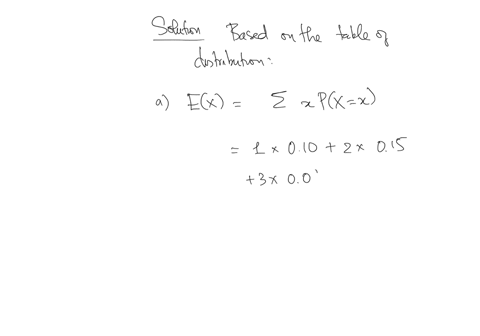 Solution Based on the table of
distribution:
a) E(x) = Σ x P(X=x)
= 1 × 0.10 + 2 × 0.15
+3 × 0.0